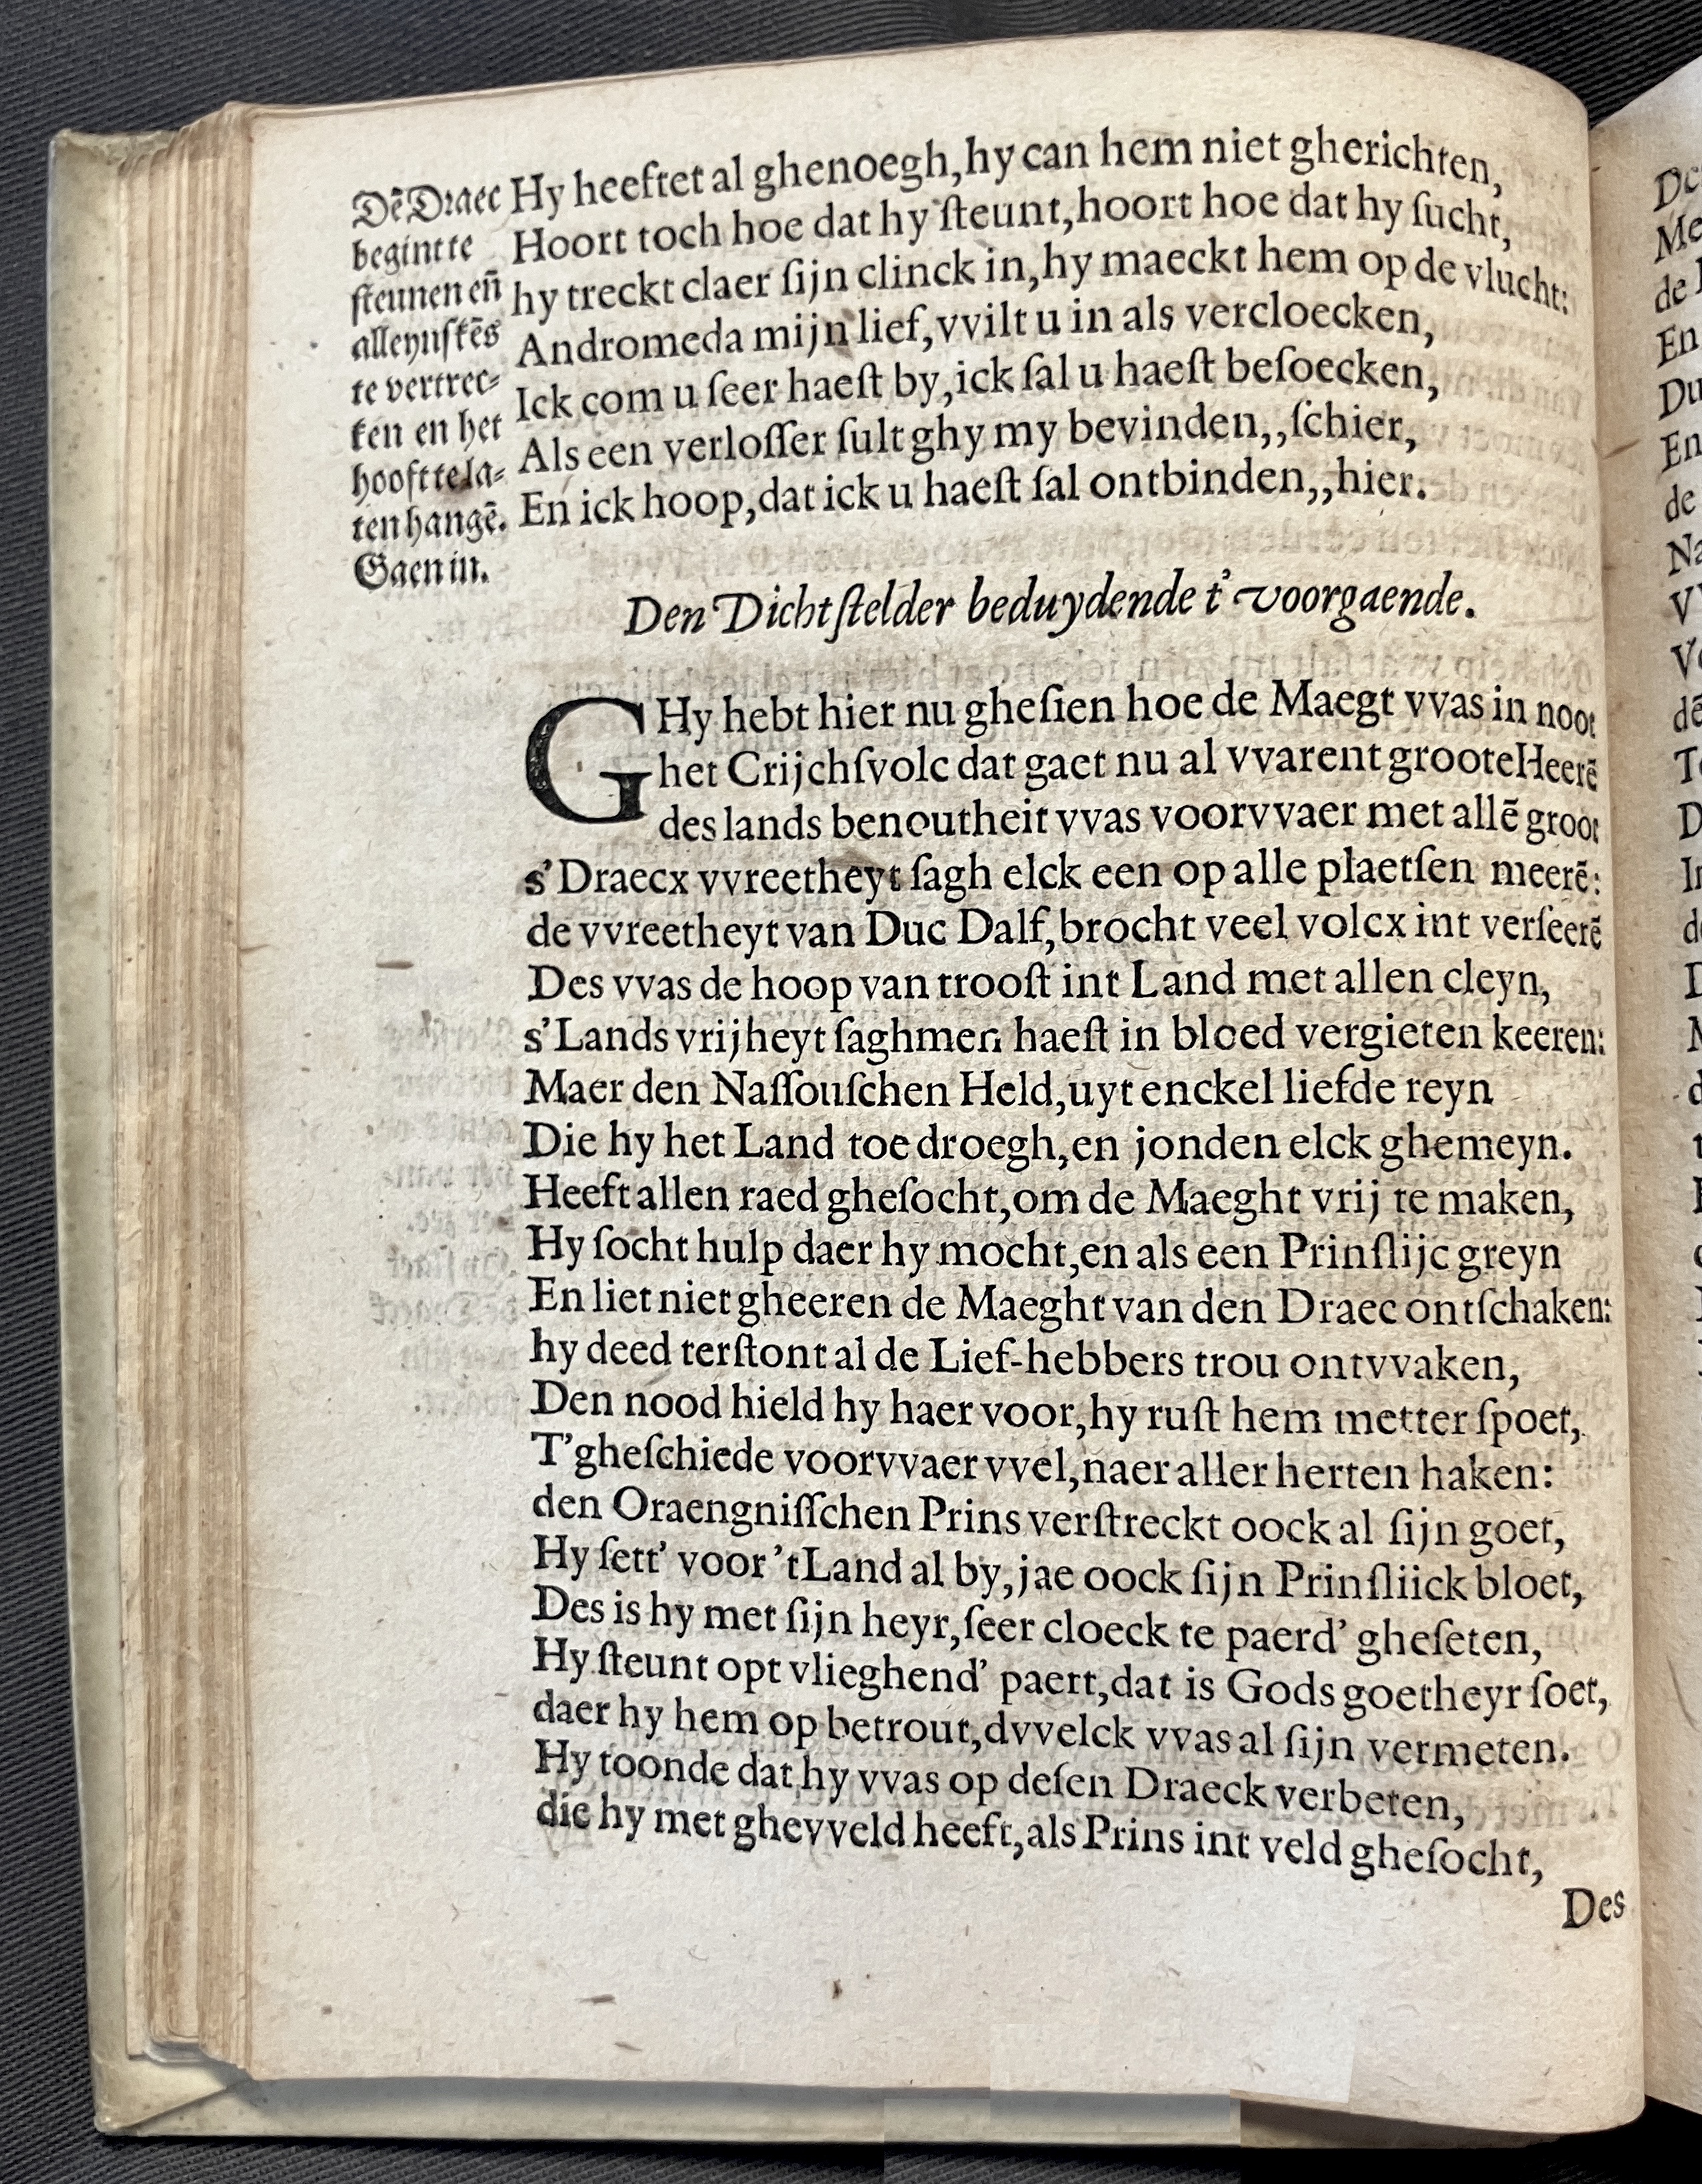 Dē Draec
begint te
steunen eñ
alleynskēs
te vertrec-
ken en het
hooft te la-
ten hangē.
Gaen in.
Hy heeftet al ghenoegh, hy can hem niet gherichten,
Hoort toch hoe dat hy ſteunt, hoort hoe dat hy ſucht,
hy treckt claer ſijn clinck in, hy maeckt hem op de vlucht:
Andromeda mijn lief, vvilt u in als vercloecken,
Ick com u ſeer haeſt by, ick ſal u haeſt beſoecken,
Als een verloſſer ſult ghy my bevinden,, ſchier,
En ick hoop, dat ick u haeſt ſal ontbinden,, hier.
Den Dichtſtelder beduydende t' voorgaende.
GHy hebt hier nu gheſien hoe de Maegt vvas in noot
het Crijchſvolc dat gaet nu al vvarent groote Heerē
des lands benoutheit vvas voorvvaer met allē groot
s'Draecx vvreetheyt ſagh elck een op alle plaetſen meerē:
de vvreetheyt van Duc Dalf, brocht veel volcx int verſeerē
Des vvas de hoop van trooſt int Land met allen cleyn,
s'Lands vrijheyt ſaghmen haeſt in bloed vergieten keeren:
Maer den Naſſouſchen Held, uyt enckel liefde reyn
Die hy het Land toe droegh, en jonden elck ghemeyn.
Heeft allen raed gheſocht, om de Maeght vrij te maken,
Hy ſocht hulp daer hy mocht, en als een Prinſlijc greyn
En liet niet gheeren de Maeght van den Draec ontſchaken:
hy deed terſtont al de Lief-hebbers trou ontvvaken,
Den nood hield hy haer voor, hy ruſt hem metter ſpoet,
T'gheſchiede voorvvaer vvel, naer aller herten haken:
den Oraengniſſchen Prins verſtreckt oock al ſijn goet,
Hy ſett' voor 't Land al by, jae oock ſijn Prinſliick bloet,
Des is hy met ſijn heyr, ſeer cloeck te paerd' gheſeten,
Hy ſteunt opt vlieghend' paert, dat is Gods goetheyt ſoet,
daer hy hem op betrout, dvvelck vvas al ſijn vermeten.
Hy toonde dat hy vvas op deſen Draeck verbeten,
die hy met ghevveld heeft, als Prins int veld gheſocht,
Des